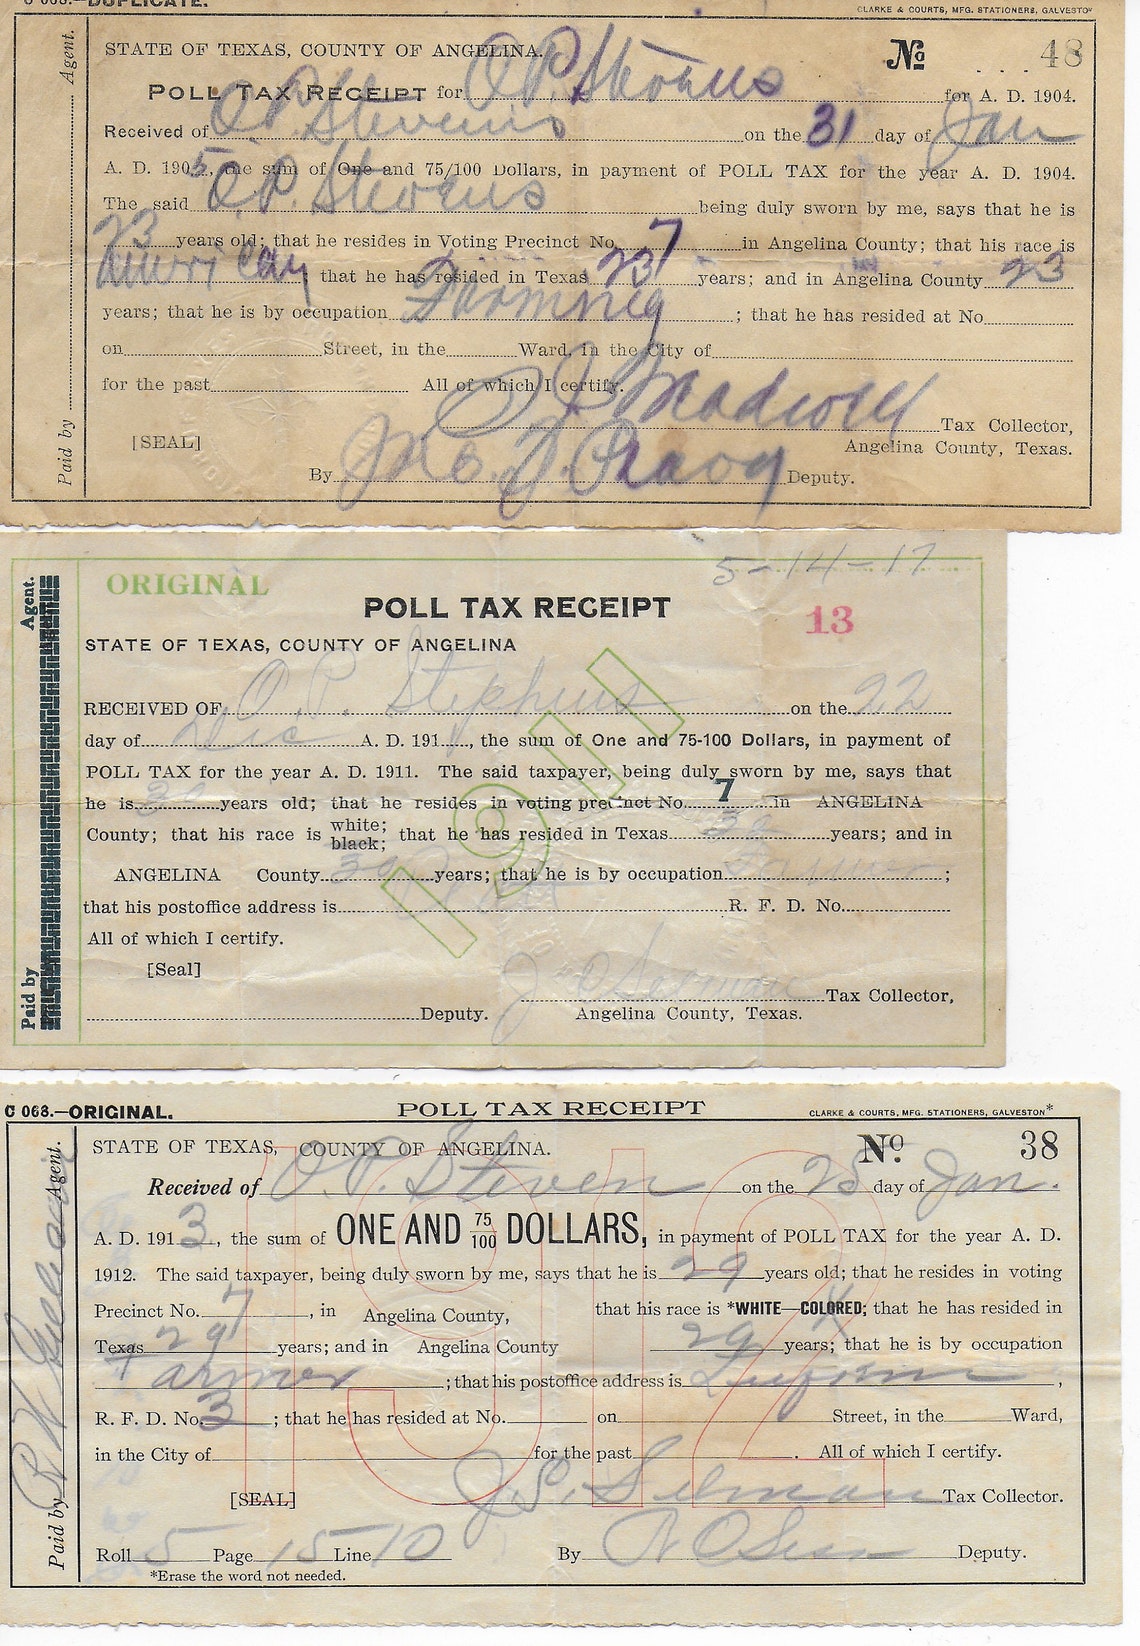 C 068.—DUPLICATE.
CLARKE & COURTS, MFG. STATIONERS, GALVESTON
STATE OF TEXAS, COUNTY OF ANGELINA.
No 48
POLL TAX RECEIPT for O P Stevens for A. D. 1904.
Received of O P Stevens on the 31 day of Jan
A. D. 1905, the sum of One and 75/100 Dollars, in payment of POLL TAX for the year A. D. 1904.
The said O. P. Stevens being duly sworn by me, says that he is
23 years old; that he resides in Voting Precinct No. 7 in Angelina County; that his race is
American; that he has resided in Texas 23 years; and in Angelina County 23
years; that he is by occupation Farming; that he has resided at No.
on Street, in the Ward, in the City of
for the past All of which I certify.
Tax Collector,
[SEAL] Angelina County, Texas.
By Deputy.
Paid by Agent.
5-14-17
ORIGINAL
POLL TAX RECEIPT
13
STATE OF TEXAS, COUNTY OF ANGELINA
1911
RECEIVED OF O. P. Stephens on the 22
day of Dec A. D. 191, the sum of One and 75-100 Dollars, in payment of
POLL TAX for the year A. D. 1911. The said taxpayer, being duly sworn by me, says that
he is years old; that he resides in voting precinct No. 7 in ANGELINA
County; that his race is white; black; that he has resided in Texas years; and in
ANGELINA County years; that he is by occupation Farmer;
that his postoffice address is R. F. D. No.
All of which I certify.
[Seal]
Selman Tax Collector,
Deputy. Angelina County, Texas.
Paid by Agent.
C 068.—ORIGINAL. POLL TAX RECEIPT CLARKE & COURTS, MFG. STATIONERS, GALVESTON*
STATE OF TEXAS, COUNTY OF ANGELINA. No. 38
1912
Received of O. P. Steven on the 25 day of Jan.
A. D. 1913, the sum of ONE AND 75/100 DOLLARS, in payment of POLL TAX for the year A. D.
1912. The said taxpayer, being duly sworn by me, says that he is 29 years old; that he resides in voting
Precinct No. 7, in Angelina County, that his race is *WHITE—COLORED; that he has resided in
Texas 29 years; and in Angelina County 29 years; that he is by occupation
Farmer; that his postoffice address is Lufkin,
R. F. D. No. 3; that he has resided at No. on Street, in the Ward,
in the City of for the past. All of which I certify.
[SEAL] Selman Tax Collector.
Roll 5 Page 15 Line 10 By Deputy.
*Erase the word not needed.
Paid by Agent.